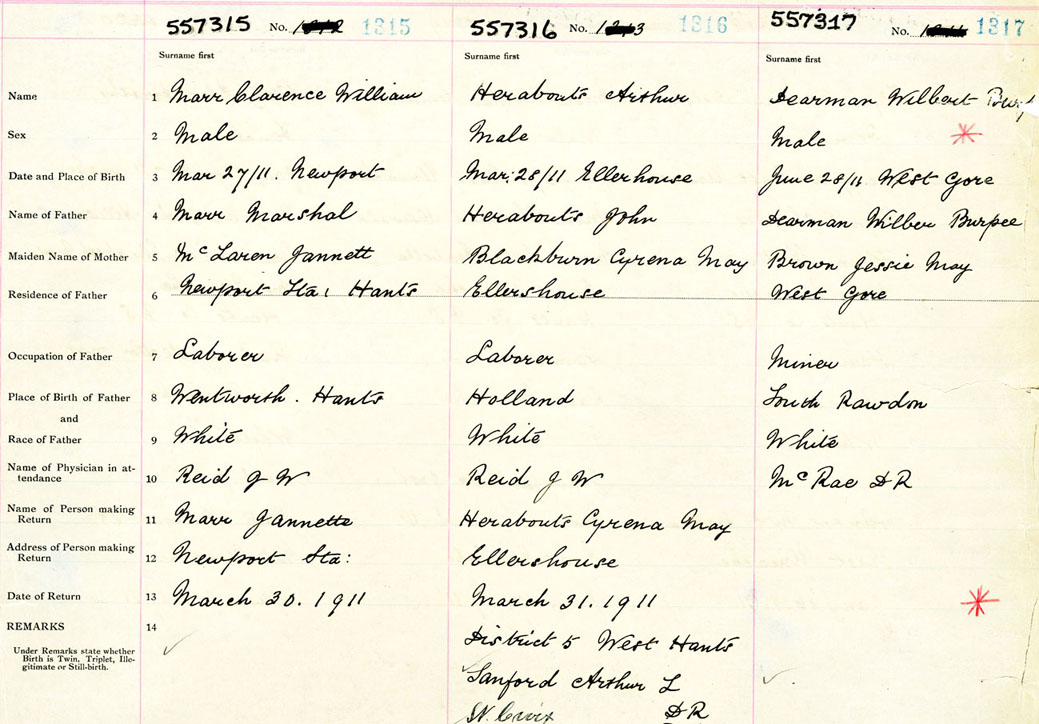 557315 No. 1315 557316 No. 1316 557317 No. 1317
Surname first Surname first Surname first
Name 1 Marr Clarence William Herabouts Arthur Dearman Wilbert
Sex 2 Male Male Male
Date and Place of Birth 3 Mar 27/11. Newport Mar. 28/11 Ellerhouse June 28/11 West Gore
Name of Father 4 Marr Marshal Herabouts John Dearman Wilber Burpee
Maiden Name of Mother 5 McLaren Jannett Blackburn Cyrena May Brown Jessie May
Residence of Father 6 Newport Sta: Hants Ellershouse West Gore
Occupation of Father 7 Laborer Laborer Miner
Place of Birth of Father 8 Wentworth. Hants Holland South Rawdon
and
Race of Father 9 White White White
Name of Physician in at-
tendance 10 Reid J W Reid J W McRae D R
Name of Person making
Return 11 Marr Jannette Herabouts Cyrena May
Address of Person making
Return 12 Newport Sta: Ellershouse
Date of Return 13 March 30. 1911 March 31. 1911
REMARKS 14
Under Remarks state whether
Birth is Twin, Triplet, Ille-
gitimate or Still-birth.
District 5 West Hants
Sanford Arthur L
St. Croix D R